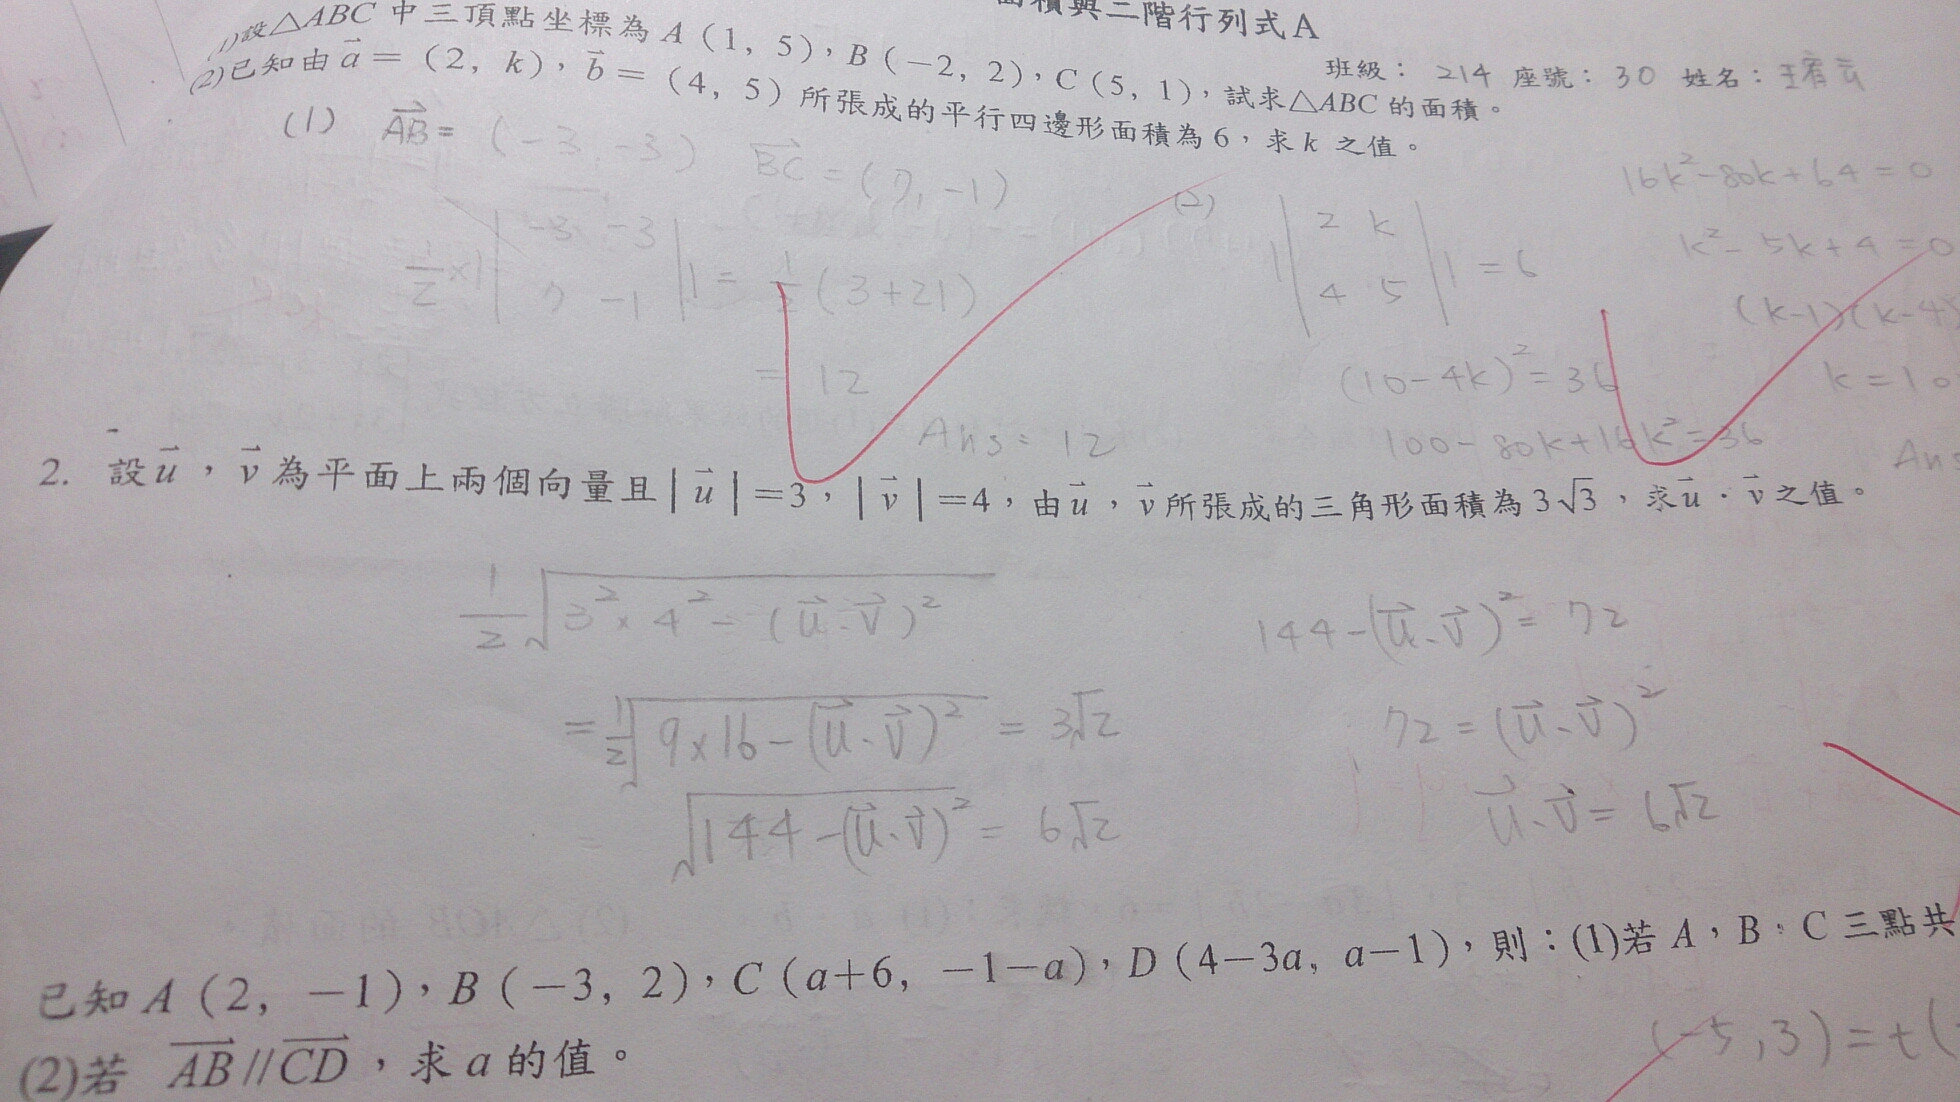 面積與二階行列式A
班級： 214 座號： 30 姓名：
(1)設△ABC 中三頂點坐標為 A (1, 5)，B (−2, 2)，C (5, 1)，試求△ABC 的面積。
(2)已知由 a⃗ = (2, k)，b⃗ = (4, 5) 所張成的平行四邊形面積為 6，求 k 之值。
(1) AB⃗ = (−3, −3) BC⃗ = (7, −1)
1/2 × | | −3 −3 |
| 7 −1 | | = 1/2 (3+21)
= 12
Ans: 12
(2) | | 2 k |
| 4 5 | | = 6
(10−4k)² = 36
100−80k+16k² = 36
16k²−80k+64=0
k²−5k+4=0
(k−1)(k−4)
k=1
Ans
2. 設 u⃗，v⃗ 為平面上兩個向量且 | u⃗ |＝3，| v⃗ |＝4，由 u⃗，v⃗ 所張成的三角形面積為 3√3，求 u⃗．v⃗ 之值。
1/2 √(3²×4²−(u⃗．v⃗)²)
= 1/2 √(9×16−(u⃗．v⃗)²) = 3√2
√(144−(u⃗．v⃗)²) = 6√2
144−(u⃗．v⃗)² = 72
72 = (u⃗．v⃗)²
u⃗．v⃗ = 6√2
已知 A (2, −1)，B (−3, 2)，C (a+6, −1−a)，D (4−3a, a−1)，則：(1)若 A，B，C 三點共
(2)若 AB⃗ // CD⃗，求 a 的值。
(−5,3)=t(